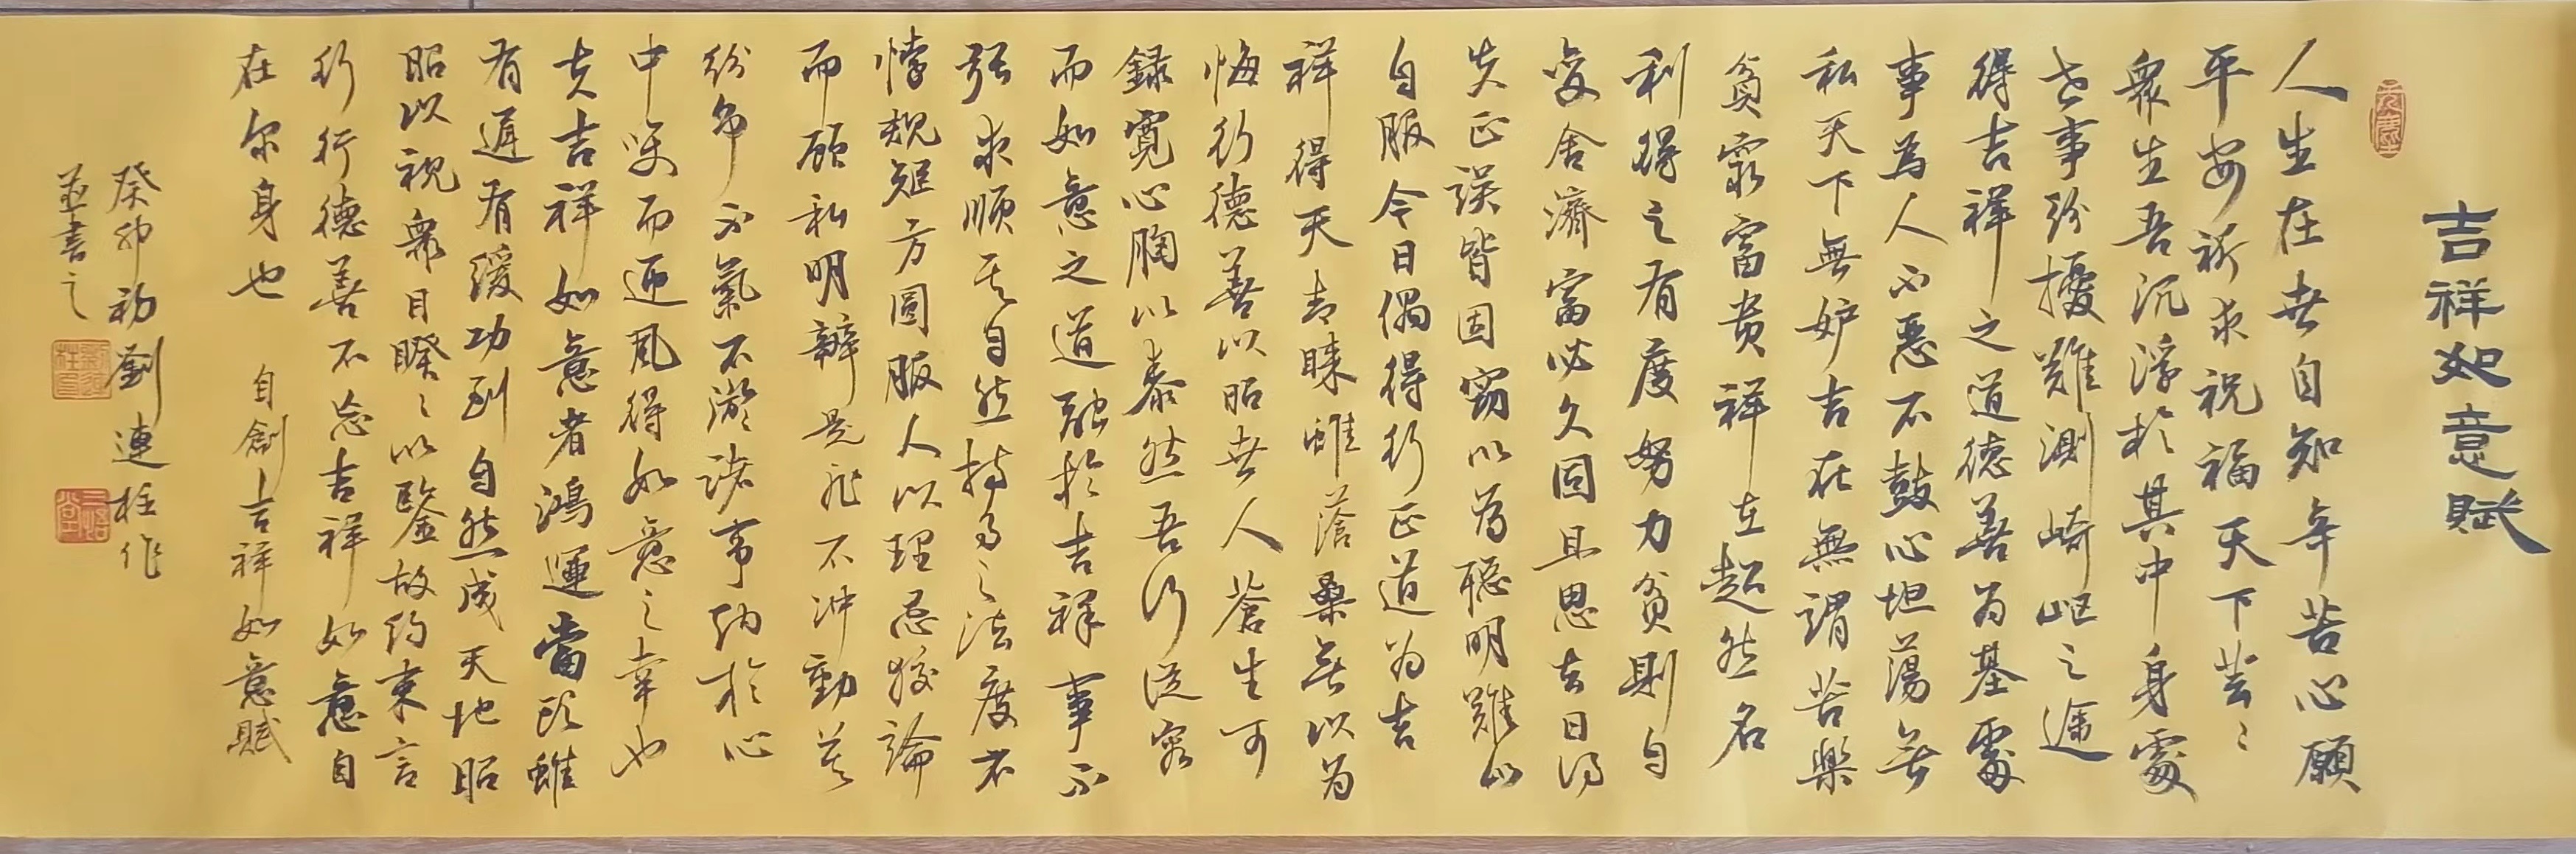 吉祥如意賦
人生在世自知辛苦心願
平安祈求祝福天下芸々
眾生吾沉浮於其中身處
世事紛擾難測崎岖之途
得吉祥之道德善為基處
事為人不惡不鼓心坦蕩無
私天下無妒吉在無謂苦樂
貧窮富贵祥在超然名
利得之有度努力貧則自
变舍濟富必久固且思去日得
失正误皆因窃以為聪明難以
自服今日偶得行正道为吉
祥得天青睐雖蒼桑無以为
悔行德善以昭世人蒼生可
録寬心胸以泰然吾行從容
而如意之道融於吉祥事不
强求順其自然持為之法度不
悖规矩方圆服人以理忌狡論
而顾私明辩是非不冲動羑
纷争不氣不濫諸事纳於心
中笑而迎風得如意之幸也
夫吉祥如意者鴻運當頭雖
有遲有缓功到自然成天地昭
昭以視眾目睽々以鑒故约束言
行行德善不忘吉祥如意自
在尔身也 自創吉祥如意賦
癸卯初劉連柱作
並書之